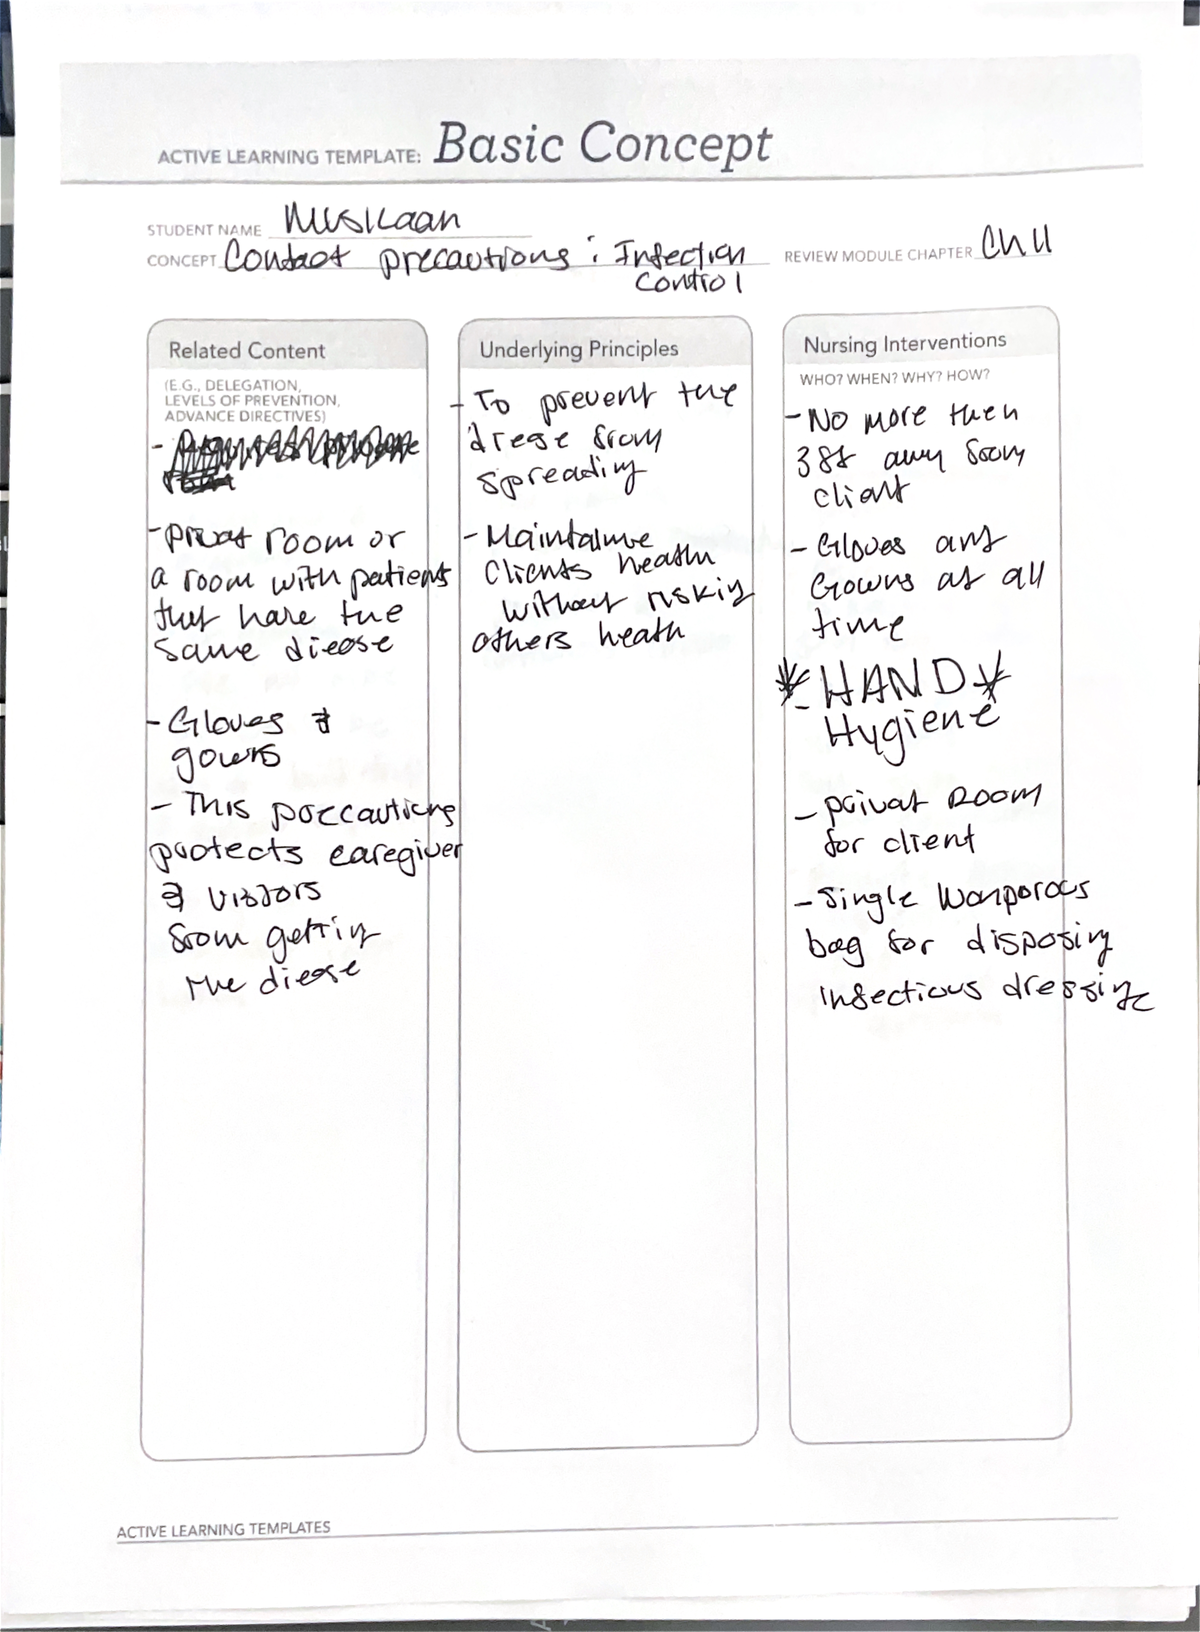 ACTIVE LEARNING TEMPLATE: Basic Concept
STUDENT NAME Musilaan
CONCEPT Contact precautions : Infection
Control
REVIEW MODULE CHAPTER Ch 11
Related Content
(E.G., DELEGATION,
LEVELS OF PREVENTION,
ADVANCE DIRECTIVES)
- Privat room or
a room with patients
that have the
same diease
- Gloves &
gowns
- This precautions
protects caregiver
& visitors
from getting
the diease
Underlying Principles
- To prevent the
from
spreading
- 
Clients heath
without risking
others heath
Nursing Interventions
WHO? WHEN? WHY? HOW?
- No more then
3ft away from
client
- Gloves and
Gowns at all
time
* HAND *
- Hygiene
- privat Room
for client
- Single Nonporous
bag for disposing
infectious dressing
ACTIVE LEARNING TEMPLATES